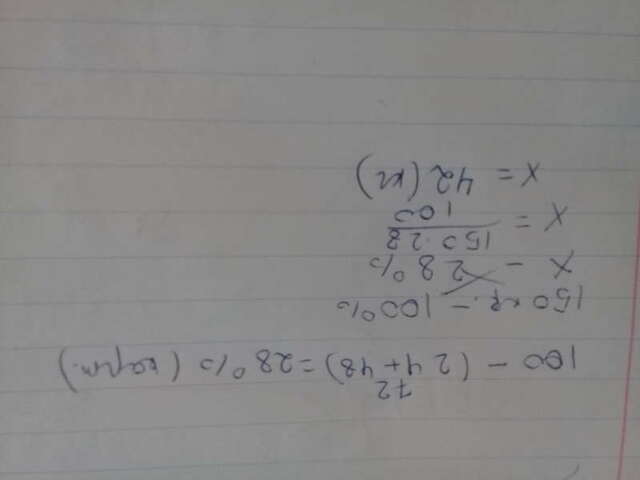 72
100 - (24 + 48) = 28% (карт.)
150 кг. - 100%
x - 28%
x = 150 · 28 / 100
x = 42 (кг)